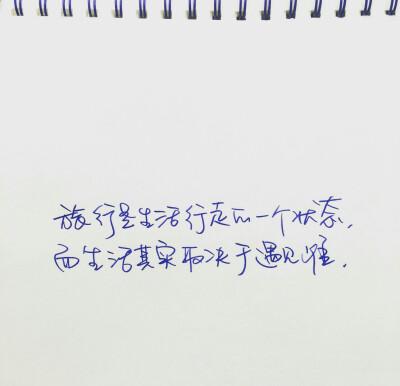 旅行是生活行走的一个状态,
而生活其实取决于遇见谁.